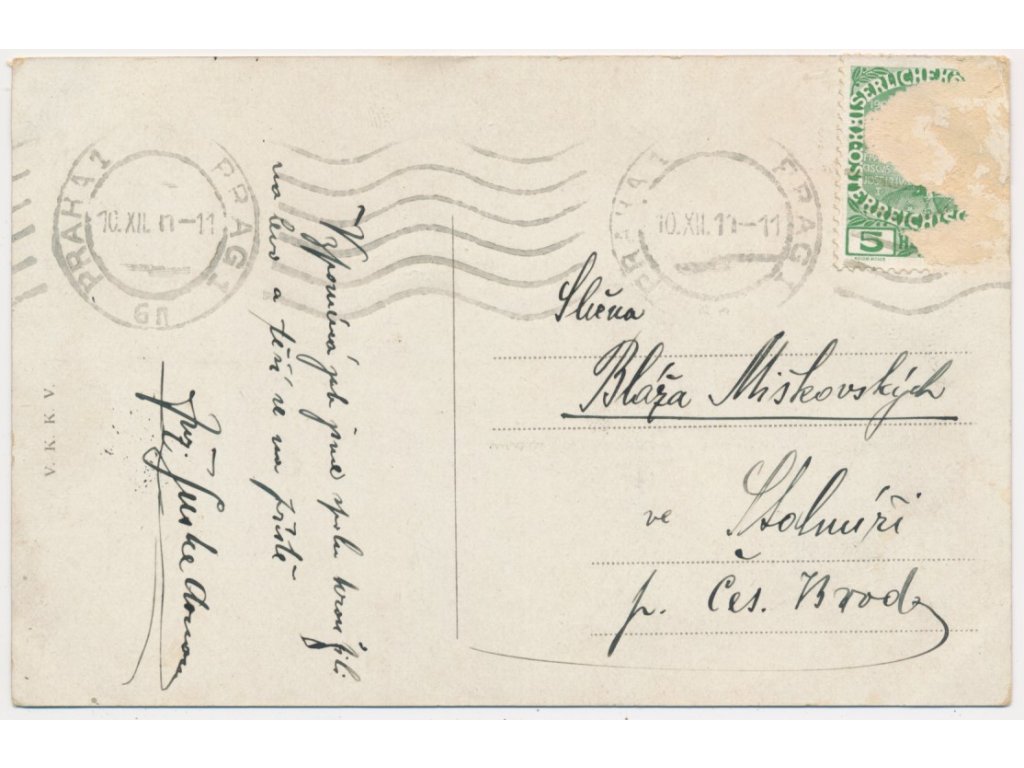 PRAHA 1 PRAG 1
10.XII.11-11
PRAHA 1 PRAG 1
10.XII.11-11
ISO·KAISERLICHE KÖ
ÖSTERREICHISC
5 H
Slečna
Bláža Miškovských
ve Stolmíři
p. Čes. Brod
Vzpomíná jak jsme spolu
na levo a těší se na příště
Jos.
V. K. K. V.